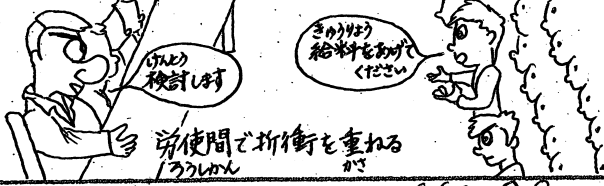 けんとう
検討します
きゅうりょう
給料をあげて
ください
労使間で折衝を重ねる
ろうしかん
かさ